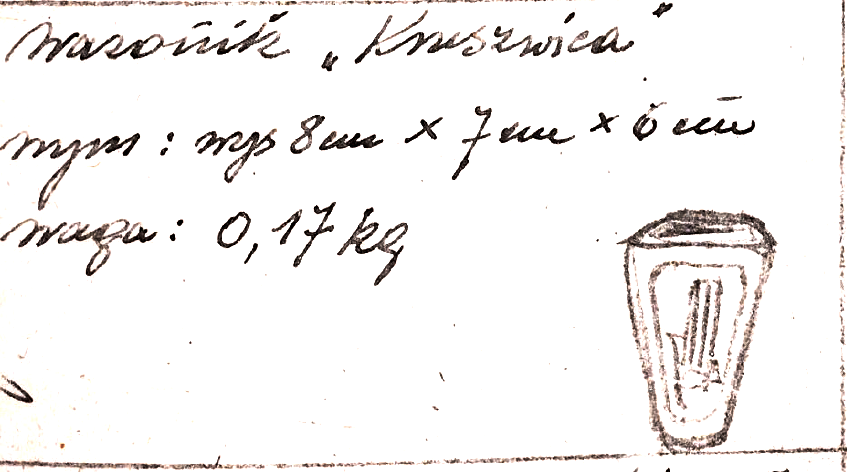 wazonik „Kruszwica"
wym: wys 8cm x 7cm x 6cm
waga: 0,17kg